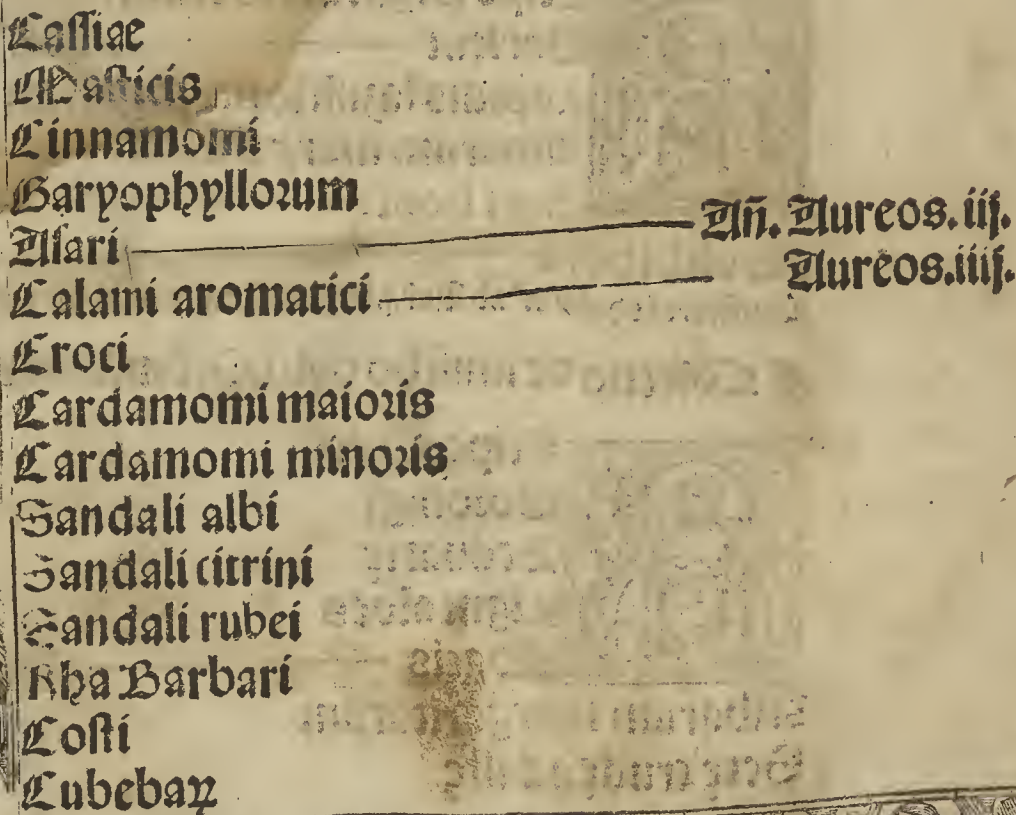 Cassiae
Masticis
Cinnamomi
Garyophyllorum
Asari An̄. Aureos. iij.
Calami aromatici Aureos. iiij.
Croci
Cardamomi maioris
Cardamomi minoris
Sandali albi
Sandali citrini
Sandali rubei
Rha Barbari
Costi
Cubebaꝝ